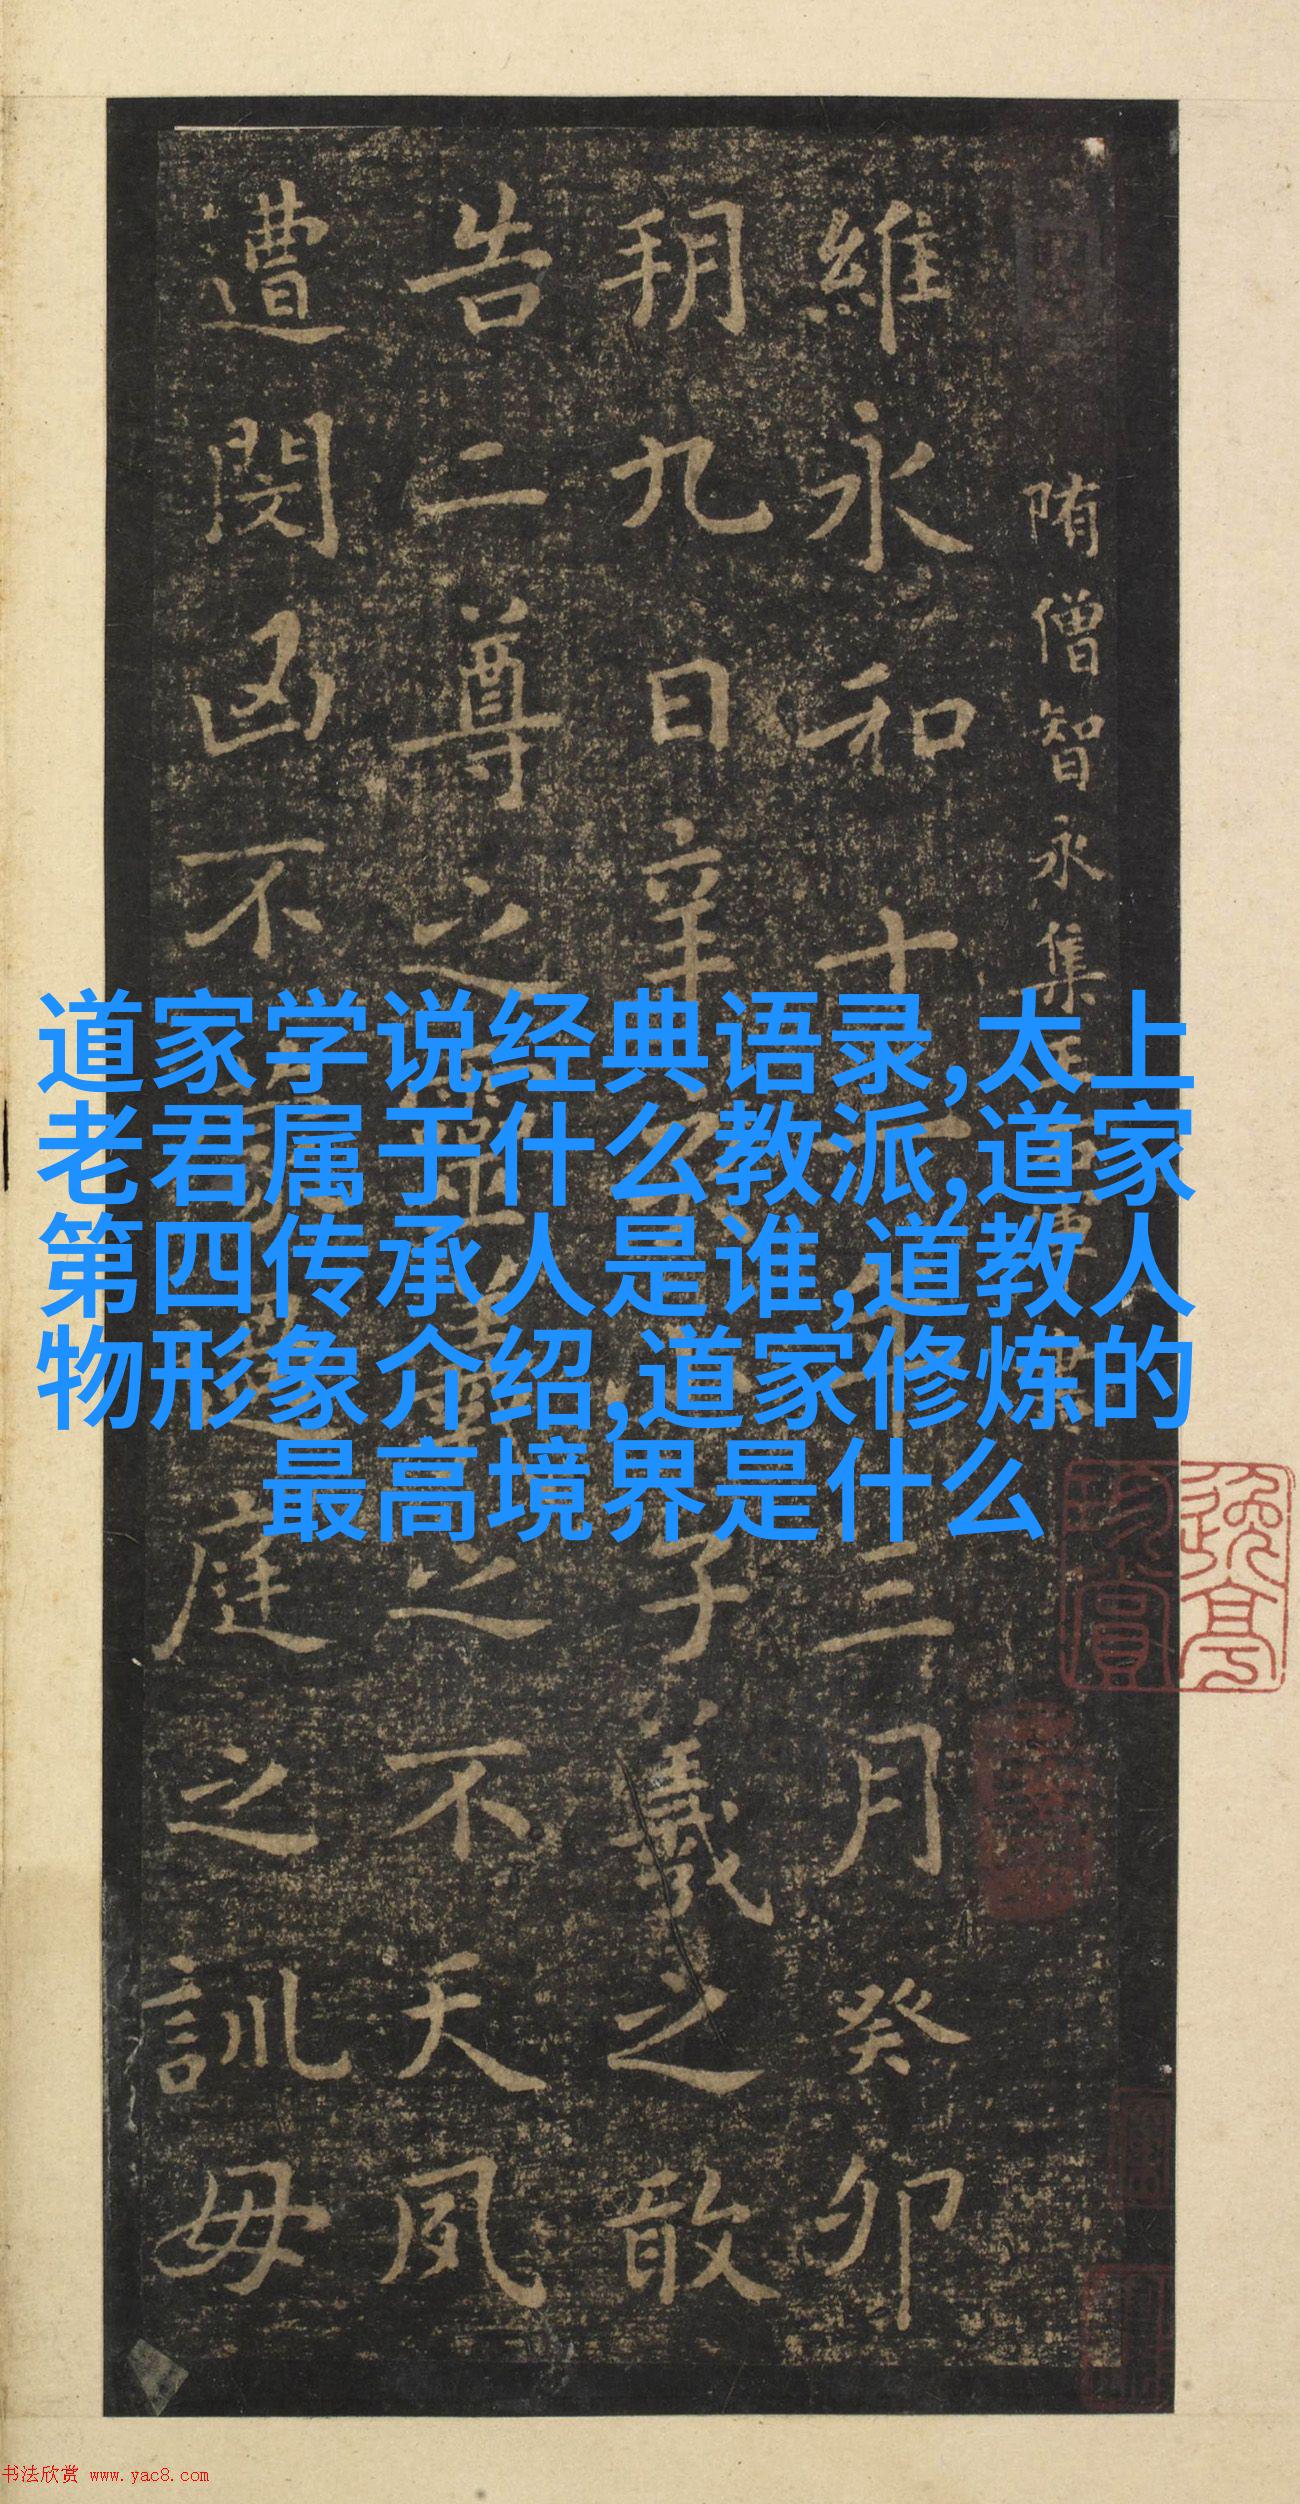 隋僧智永集王右軍書
維永和十一年三月癸卯
朔九日辛亥小子羲之敢
告二尊之靈羲之不天夙
遭閔凶不蒙過庭之訓毋
道家学说经典语录,太上
老君属于什么教派,道家
第四传承人是谁,道教人
物形象介绍,道家修炼的
最高境界是什么
珍賞
书法欣赏 www.yac8.com